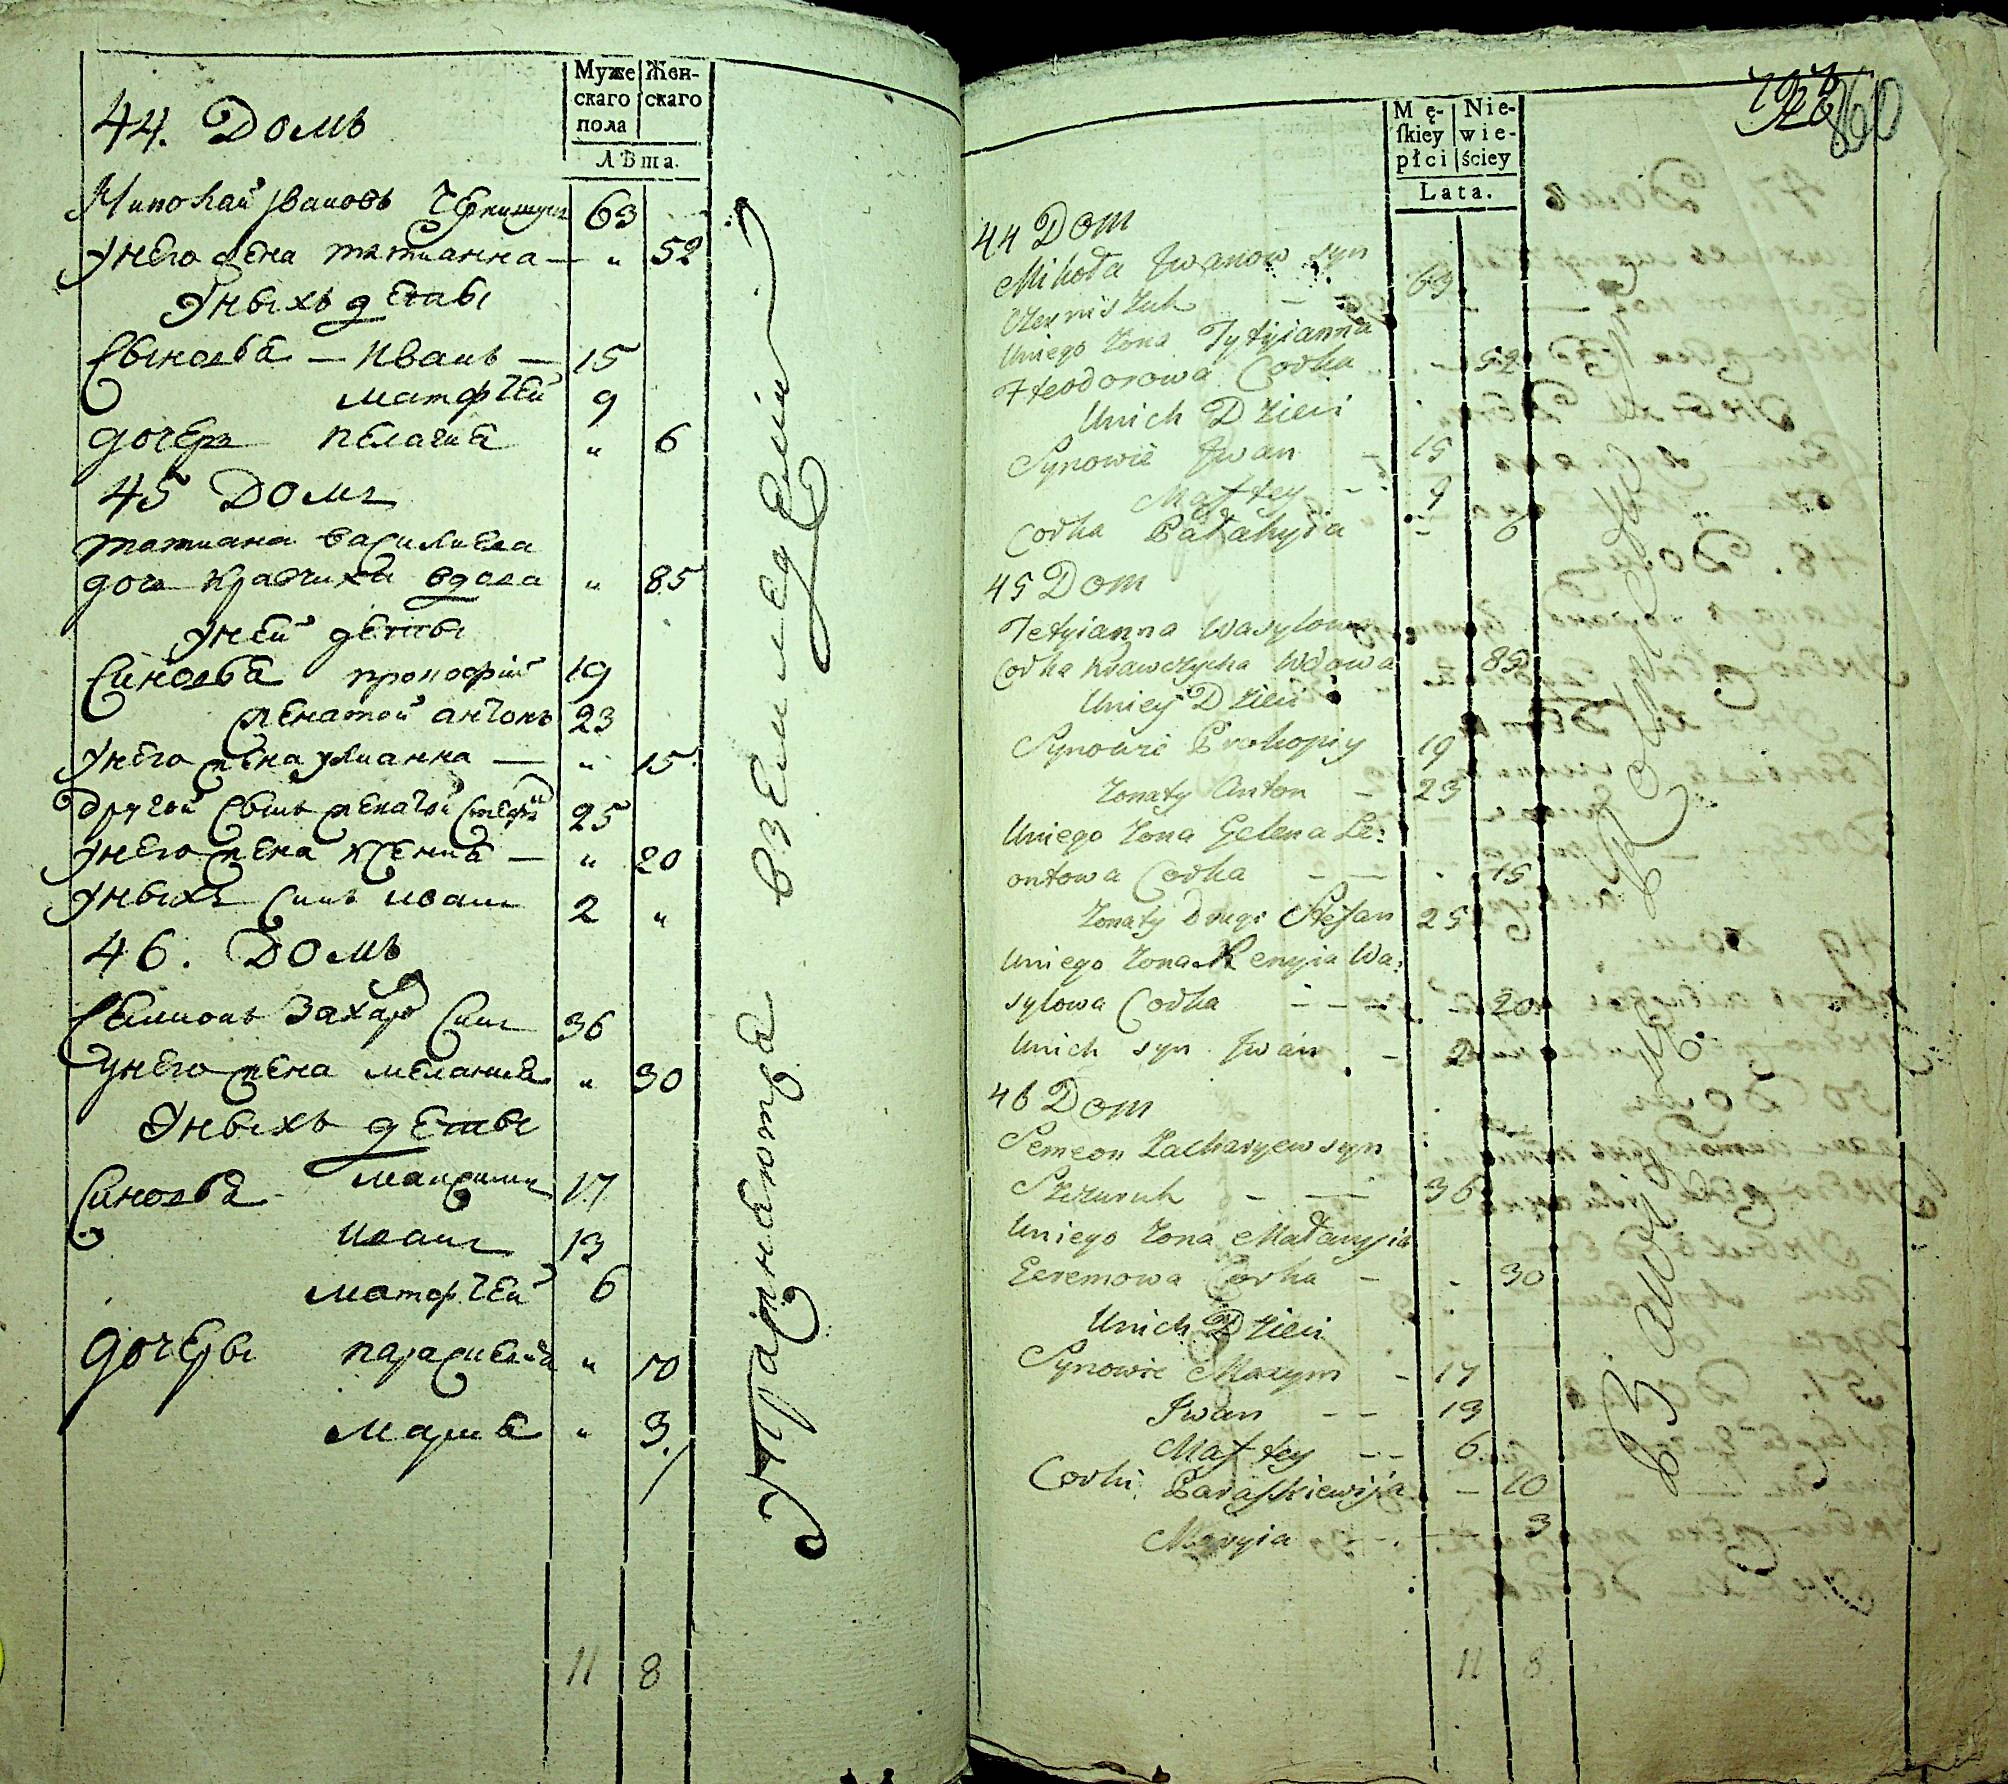 Муже Жен-
скаго скаго
пола
Лѣта.
44. Домъ
Миколай Ивановъ Чернишукъ 63
Унего жена татианна — " 52
Уныхъ дѣти
Сыновья — Иванъ — 15
матфѣй 9
дочерь пелагия " 6
45 Домъ
татиана василиева
дочь кравчиха вдова " 85
Уней дѣты
Синовья прокофий 19
женатой антонъ 23
Унего жена улианна — " 15
Другой сынъ женатой Стефан 25
Унего жена ксения — " 20
Уныхъ синъ иванъ 2 "
46. Домъ
Семионъ Захаров Синъ 36
Унего жена мелания " 30
Уныхъ дѣты
Синовья максимъ 17
иванъ 13
матфѣй 6
дочеры парасиевия " 10
мария " 3
11 8
въ Земледелии
Упражняются
860
Mę- Nie-
ſkiey wie-
płci ściey
Lata.
44 Dom
Mikoła Jwanow syn
Czerniszuk - - 63
Uniego Żona Tytyianna
Fteodorowa Corka - 52
Unich Dzieci
Synowie Jwan - 15
Maftey - 9
Corka Pałahyia - 6
45 Dom
Tetyianna Wasylowa
Corka Krawczycha Wdowa - 85
Uniey Dzieci
Synowie Prokopiy 19
Żonaty Anton - 23
Uniego Żona Gelena Le:
ontowa Corka - - - 15
Żonaty Drugi Stefan 25
Uniego Żona Xenyia Wa:
sylowa Corka - - - - 20
Unich syn Jwan - 2
46 Dom
Semeon Zacharyew syn
Szczuruk - - 36
Uniego Żona Małanyia
Eeremowa Corka - - 30
Unich Dzieci
Synowie Maxym - 17
Jwan - - 13
Maftey - - 6
Corki Paraſkiewiia - 10
Maryia - - 3
11 8